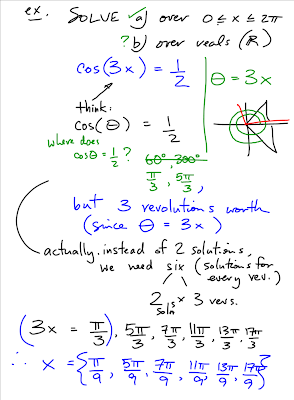 ex. SOLVE ✓a) over 0 ≤ x ≤ 2π
? b) over reals (ℝ)
cos(3x) = 1/2
θ = 3x
think:
cos(θ) = 1/2
where does
cosθ = 1/2 ?
60°, 300°
π/3, 5π/3,
but 3 revolutions worth
(since θ = 3x)
actually, instead of 2 solutions,
we need six (solutions for
every rev.)
2 solns × 3 revs.
(3x = π/3), 5π/3, 7π/3, 11π/3, 13π/3, 17π/3
∴ x = {π/9, 5π/9, 7π/9, 11π/9, 13π/9, 17π/9}